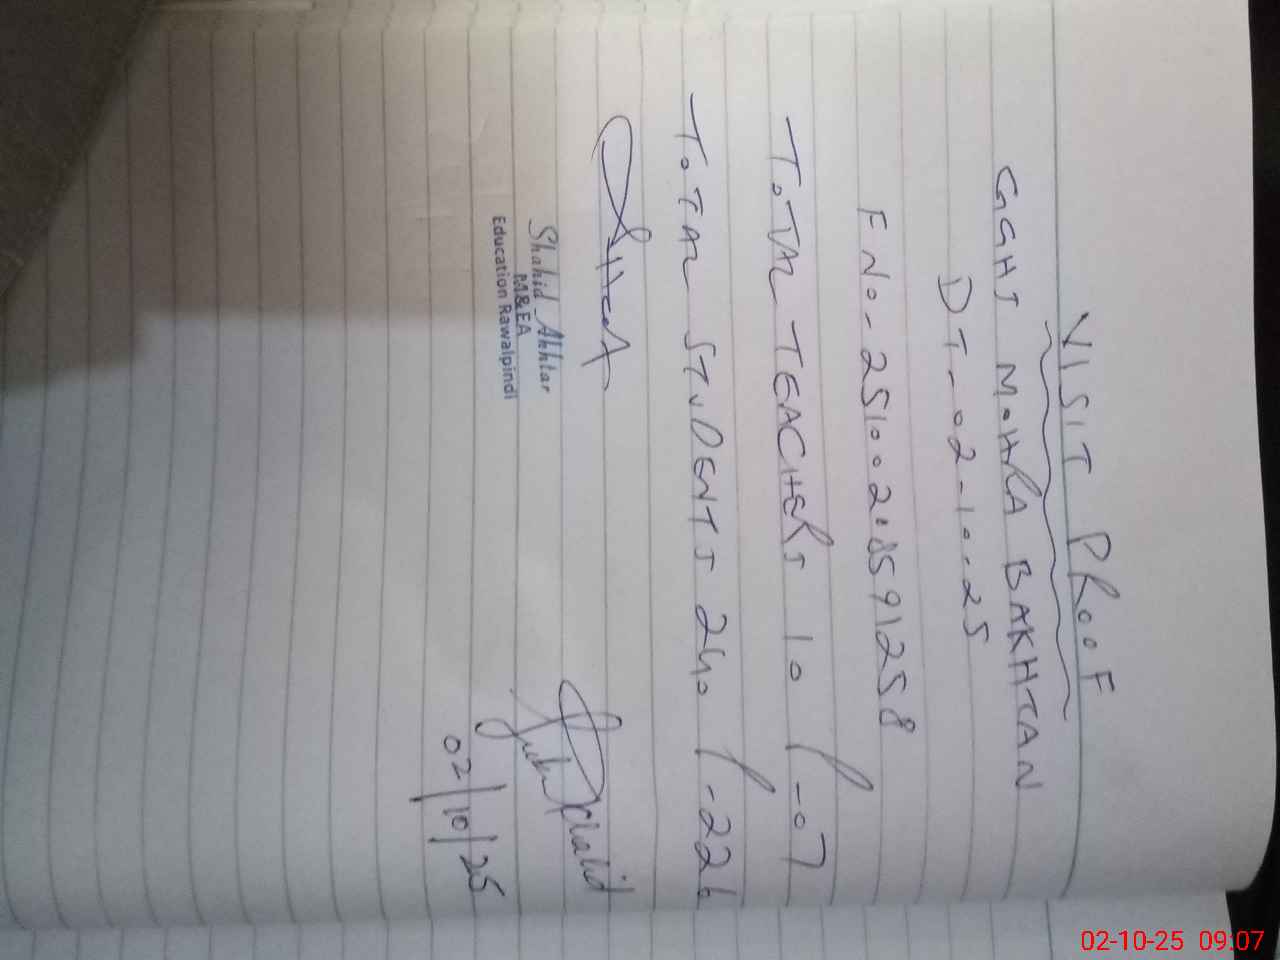 VISIT PROOF
GGHS MOHRA BAKHTAN
DT-02-10-25
F No- 25100208591258
TOTAL TEACHERS 10 P-07
TOTAL STUDENTS 240 P-226
Shahid Akhtar
M&EA
Education Rawalpindi
Khalid
02/10/25
02-10-25 09:07